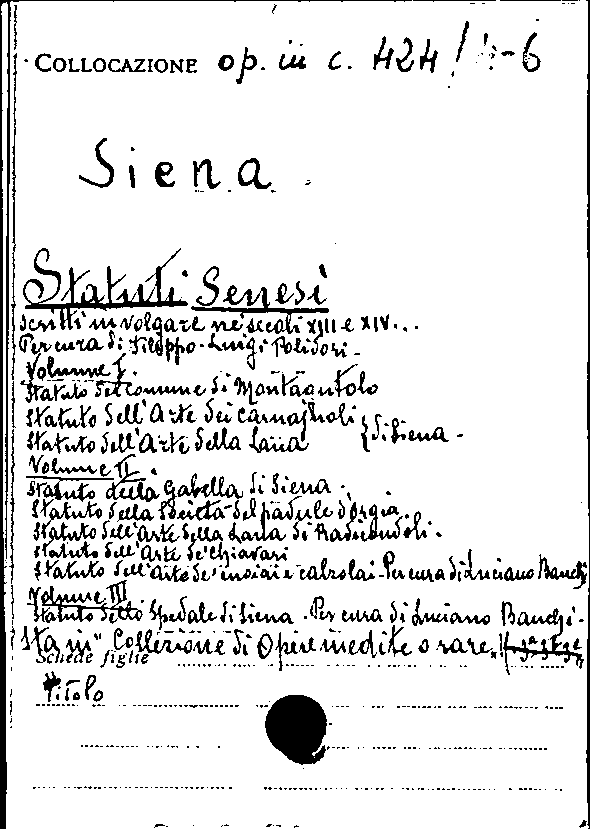 COLLOCAZIONE op. in c. 424 / 4-6
Siena
Statuti Senesi
scritti in volgare ne' secoli XIII e XIV...
Per cura di Filippo-Luigi Polidori -
Volume I.
Statuto del comune di Montagutolo
Statuto dell'Arte dei Carnajuoli
Statuto dell'Arte della Lana } di Siena -
Volume II.
Statuto della Gabella di Siena.
Statuto della Società del padule d'Orgia.
Statuto dell'Arte della Lana di Radicondoli.
Statuto dell'Arte de' Chiavari
Statuto dell'Arte de' cuoiai e calzolai - Per cura di Luciano Banchi
Volume III
Statuto dello Spedale di Siena - Per cura di Luciano Banchi -
Sta in "Collezione di Opere inedite o rare."
Schede figlie
Titolo